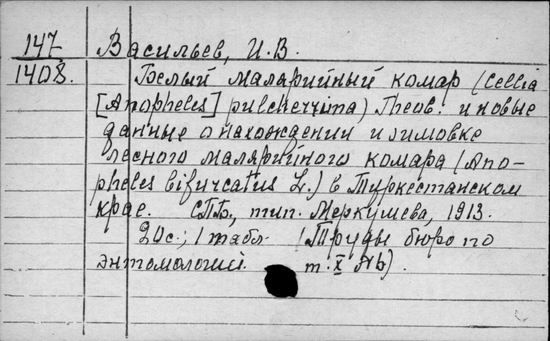 147 Васильев, И.В.
1408. Белый малярийный комар (Cellia
[Anopheles] pulcherrima) Theob. и новые
данные о нахождении и зимовке
лесного малярийного комара (Ano-
pheles bifurcatus L.) в Туркестанском
крае. СПБ., тип. Меркушева, 1913.
20с.; 1 табл. (Труды бюро по
энтомологии. т. X №6).